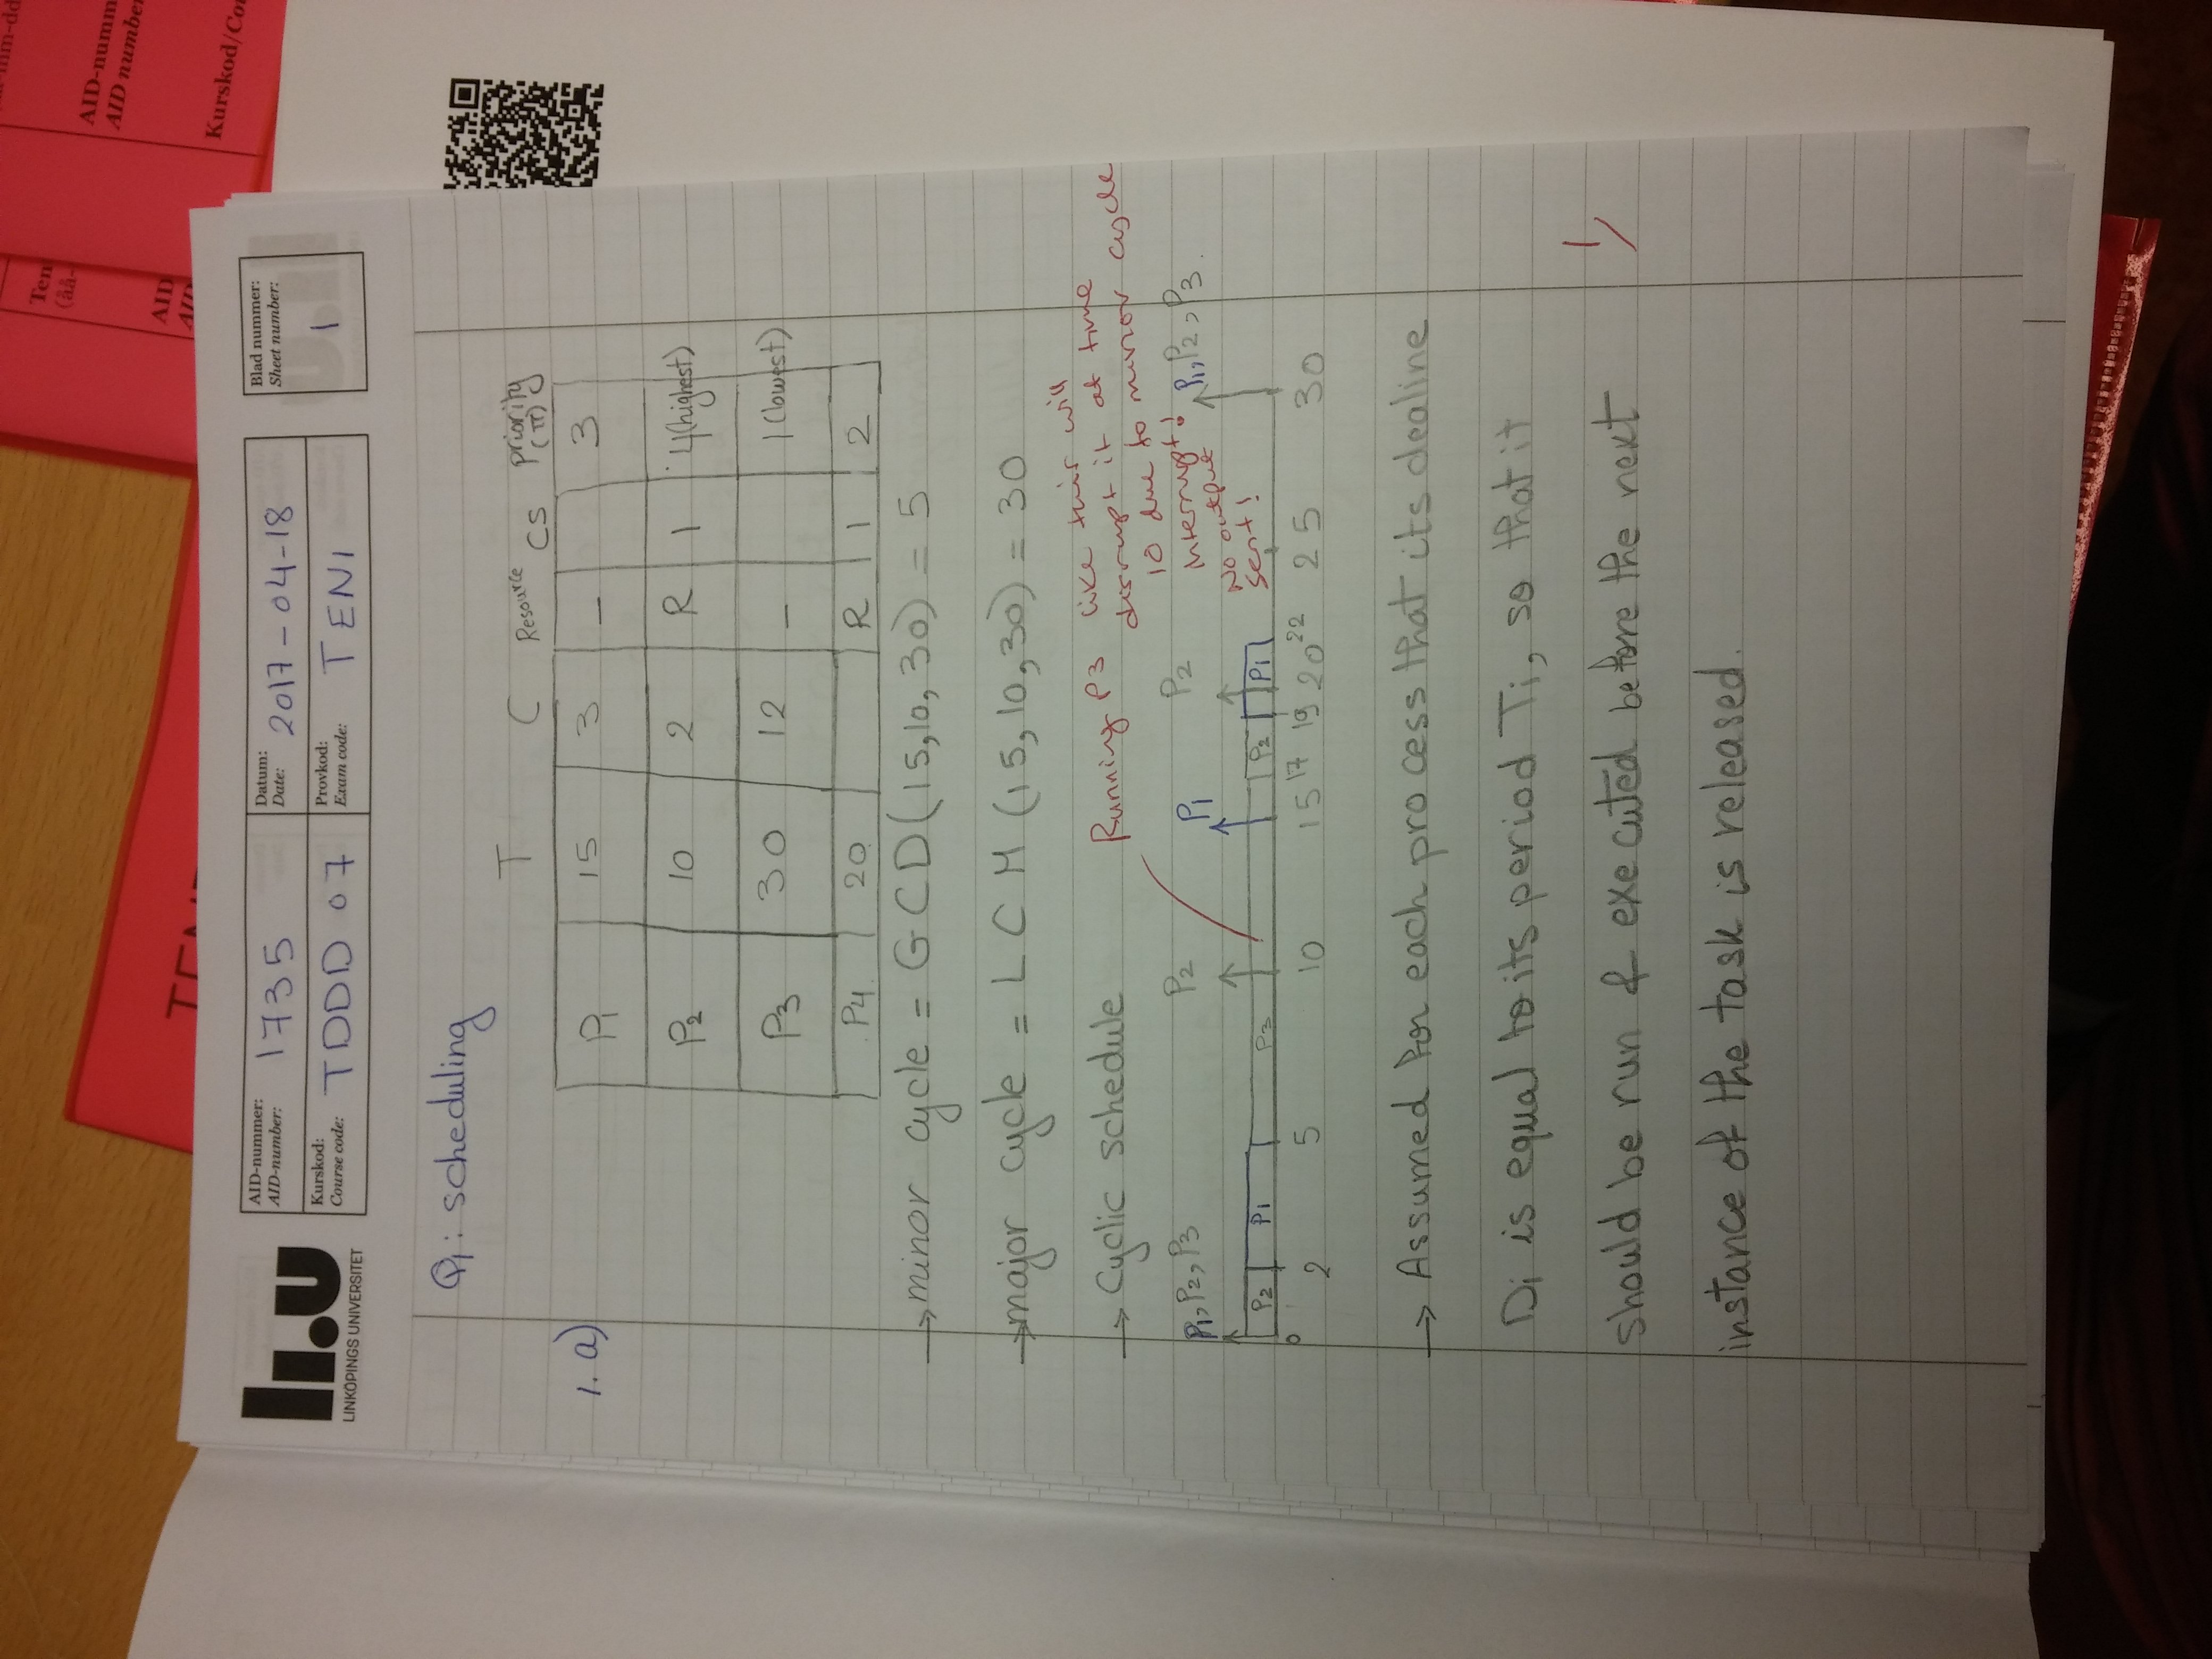 AID-nummer:
AID-number: 1735
Datum:
Date: 2017-04-18
Blad nummer:
Sheet number: 1
Kurskod:
Course code: TDDD 07
Provkod:
Exam code: TEN1
LINKÖPINGS UNIVERSITET
Q1: scheduling
1.a)
T C Resource CS priority (π)
P1 15 3 - 3
P2 10 2 R 1 4(highest)
P3 30 12 - 1(lowest)
P4 20 R 1 2
→ minor cycle = GCD(15,10,30) = 5
→ major cycle = LCM(15,10,30) = 30
→ Cyclic schedule
Running P3 like this will
disrupt it at time
10 due to minor cycle
Interrupt!
No output
sent!
P1,P2,P3 P2 P1 P2 P1,P2,P3.
P2 P1 P3 P2 P1
0 2 5 10 15 17 19 20 22 25 30
→ Assumed for each process that its dealine
Di is equal to its period Ti, so that it
should be run & executed before the next
instance of the task is released.
1
AID-nummer
AID number
Kurskod/Co
mm-dd
Ten
(åå-
AID